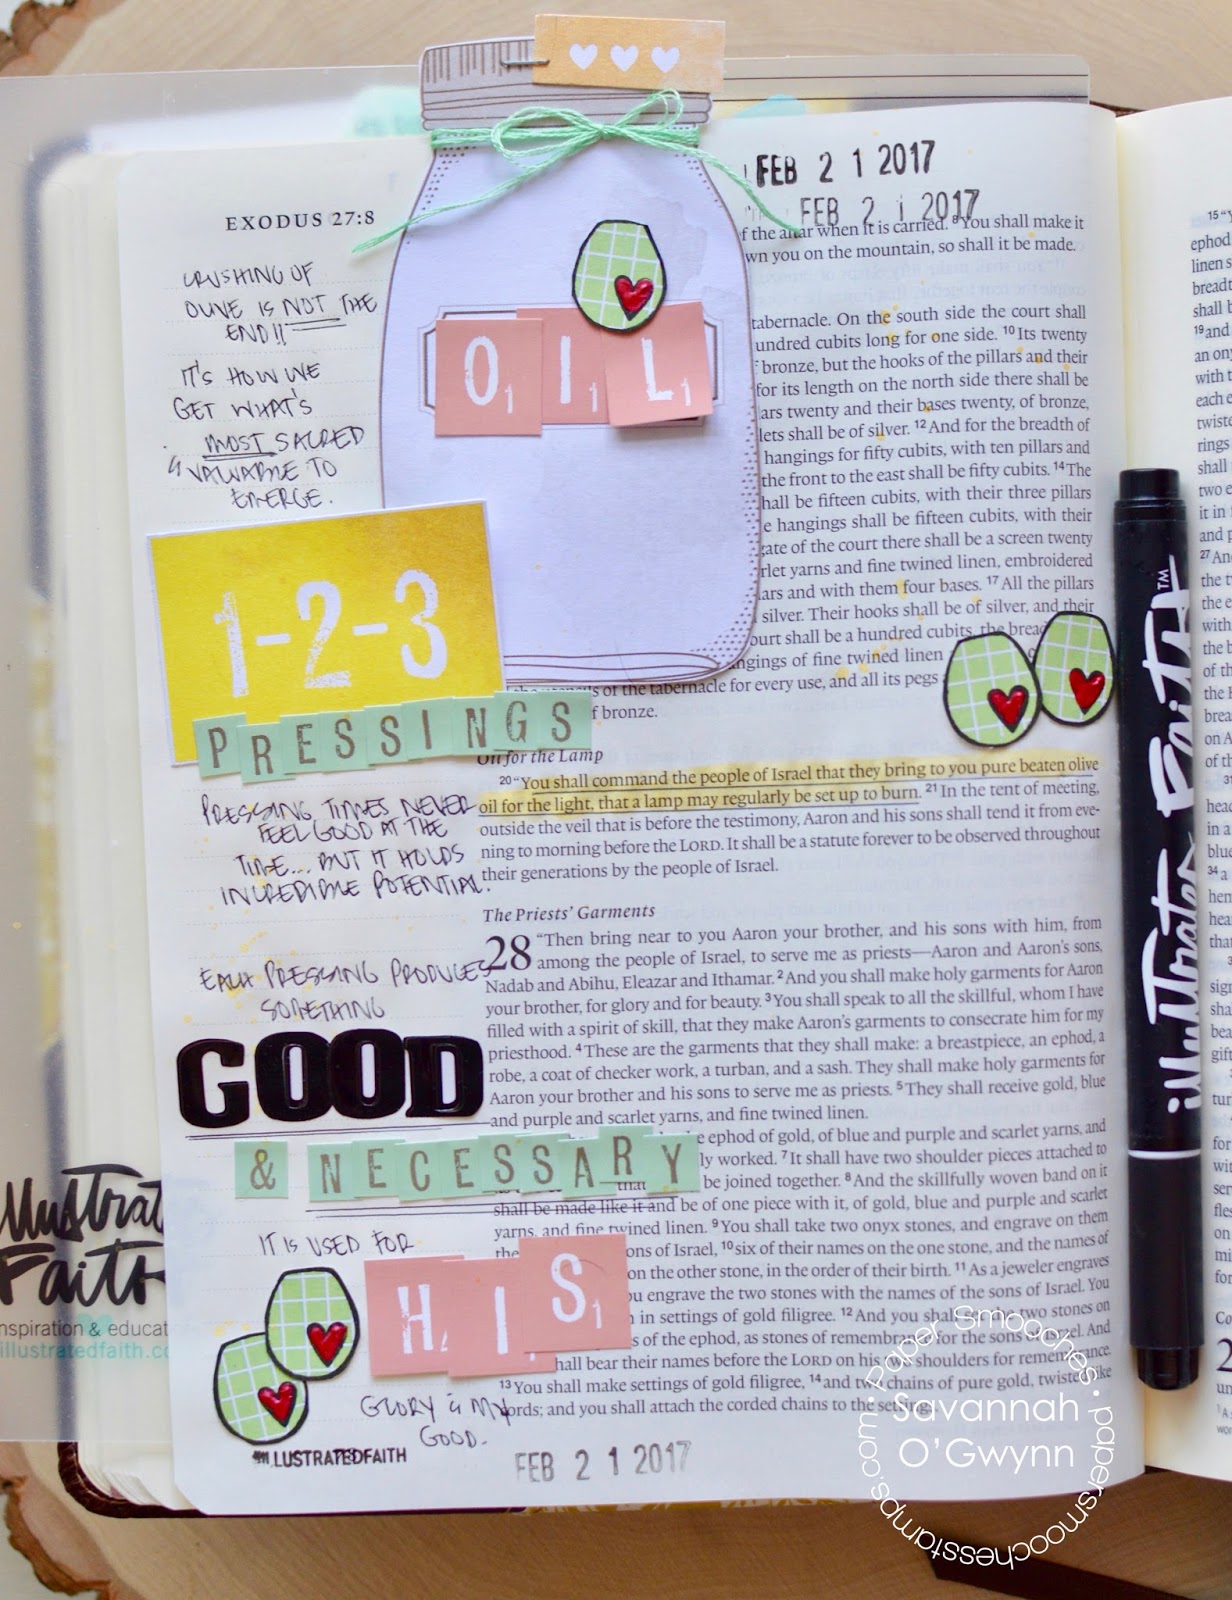 FEB 2 1 2017
FEB 2 1 2017
EXODUS 27:8
CRUSHING OF
OLIVE IS NOT THE
END!!
IT'S HOW WE
GET WHAT'S
MOST SACRED
& VALUABLE TO
EMERGE.
OIL
1-2-3
PRESSINGS
PRESSING TIMES NEVER
FEEL GOOD AT THE
TIME.... BUT IT HOLDS
INCREDIBLE POTENTIAL.
EACH PRESSING PRODUCES
SOMETHING
GOOD
& NECESSARY
IT IS USED FOR
HIS
GLORY & MY
GOOD.
ILLUSTRATEDFAITH
FEB 2 1 2017
of the altar when it is carried. 8 You shall make it
wn you on the mountain, so shall it be made.
tabernacle. On the south side the court shall
undred cubits long for one side. 10 Its twenty
f bronze, but the hooks of the pillars and their
for its length on the north side there shall be
lars twenty and their bases twenty, of bronze,
lets shall be of silver. 12 And for the breadth of
hangings for fifty cubits, with ten pillars and
the front to the east shall be fifty cubits. 14 The
hall be fifteen cubits, with their three pillars
e hangings shall be fifteen cubits, with their
gate of the court there shall be a screen twenty
rlet yarns and fine twined linen, embroidered
lars and with them four bases. 17 All the pillars
silver. Their hooks shall be of silver, and their
ourt shall be a hundred cubits, the
ngings of fine twined linen
the utensils of the tabernacle for every use, and all its pegs
f bronze.
Oil for the Lamp
20 "You shall command the people of Israel that they bring to you pure beaten olive
oil for the light, that a lamp may regularly be set up to burn. 21 In the tent of meeting,
outside the veil that is before the testimony, Aaron and his sons shall tend it from eve-
ning to morning before the LORD. It shall be a statute forever to be observed throughout
their generations by the people of Israel.
The Priests' Garments
28 "Then bring near to you Aaron your brother, and his sons with him, from
among the people of Israel, to serve me as priests—Aaron and Aaron's sons,
Nadab and Abihu, Eleazar and Ithamar. 2 And you shall make holy garments for Aaron
your brother, for glory and for beauty. 3 You shall speak to all the skillful, whom I have
filled with a spirit of skill, that they make Aaron's garments to consecrate him for my
priesthood. 4 These are the garments that they shall make: a breastpiece, an ephod, a
robe, a coat of checker work, a turban, and a sash. They shall make holy garments for
Aaron your brother and his sons to serve me as priests. 5 They shall receive gold, blue
and purple and scarlet yarns, and fine twined linen.
e ephod of gold, of blue and purple and scarlet yarns, and
ly worked. 7 It shall have two shoulder pieces attached to
that be joined together. 8 And the skillfully woven band on it
shall be made like it and be of one piece with it, of gold, blue and purple and scarlet
yarns, and fine twined linen. 9 You shall take two onyx stones, and engrave on them
the ons of Israel, 10 six of their names on the one stone, and the names of
on the other stone, in the order of their birth. 11 As a jeweler engraves
u engrave the two stones with the names of the sons of Israel. You
in settings of gold filigree. 12 And you shall set the two stones on
s of the ephod, as stones of remembrance for the sons of Israel. And
hall bear their names before the LORD on his two shoulders for remembrance.
13 You shall make settings of gold filigree, 14 and two chains of pure gold, twisted like
ords; and you shall attach the corded chains to the settings.
Illustrat
Faith
nspiration & educat
illustratedfaith.co
illustrated Faith™
Paper Smooches
papersmoochesstamps.com
Savannah
O'Gwynn